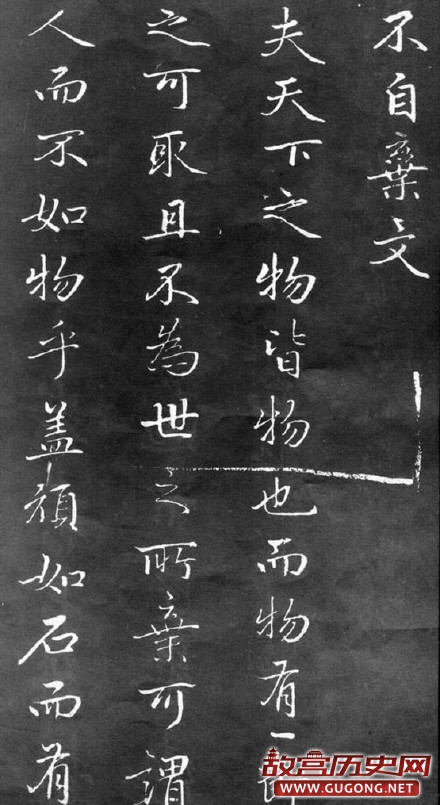 不自棄文
夫天下之物皆物也而物有一節
之可取且不為世之所棄可謂
人而不如物乎蓋頑如石而有
故宫历史网
WWW.GUGONG.NET